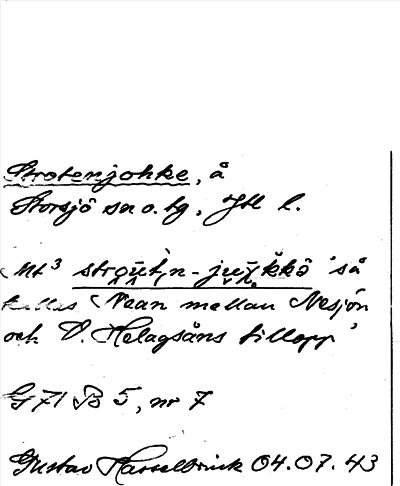 Strotenjohke, å
Storsjö sn o. tg, Jtl l.
Mt³ stroutin - juvkkō 'så
kallas Nean mellan Nesjön
och V. Helagsåns tillopp'
G 71 B 5, nr 7
Gustav Hasselbrink 04.07.43